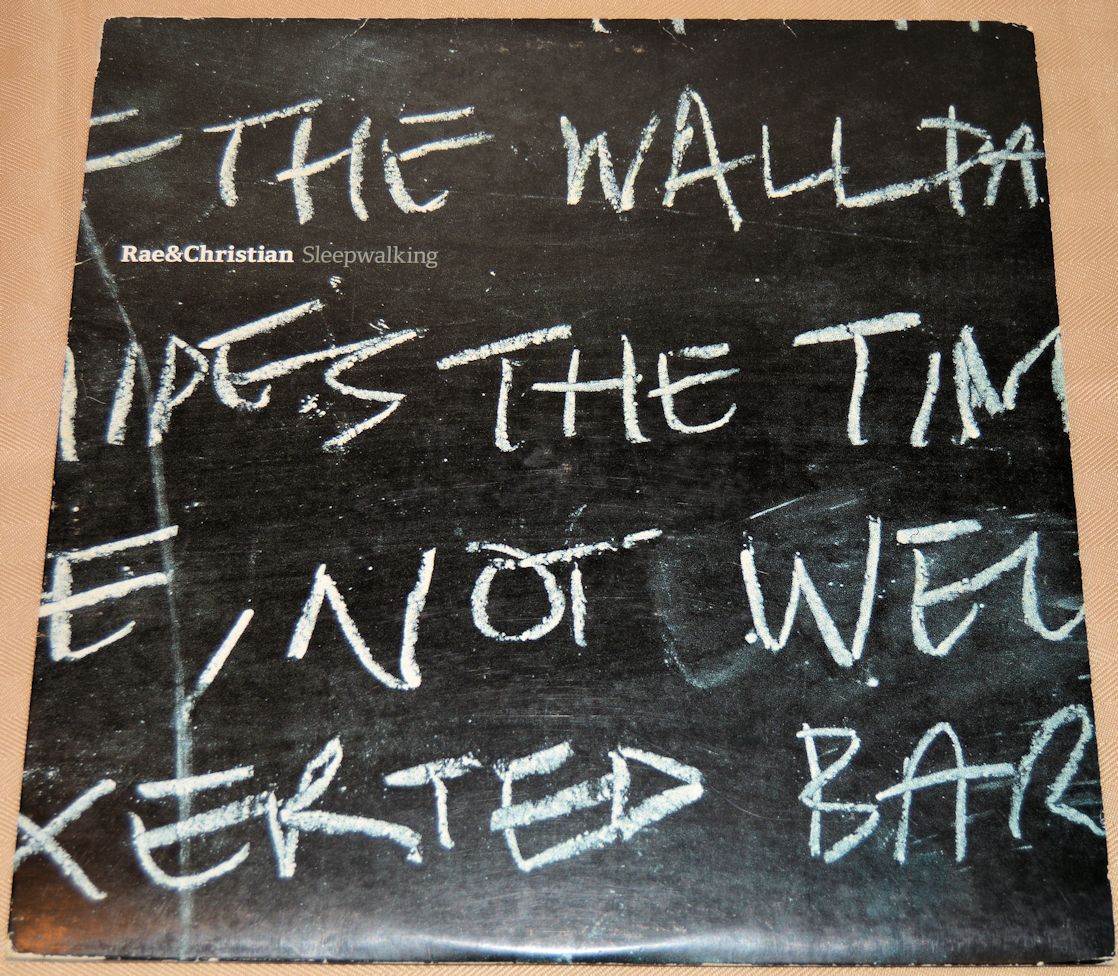 THE WALLPA
Rae&Christian Sleepwalking
IPES THE TIM
E, NOT WEL
XERTED BAR